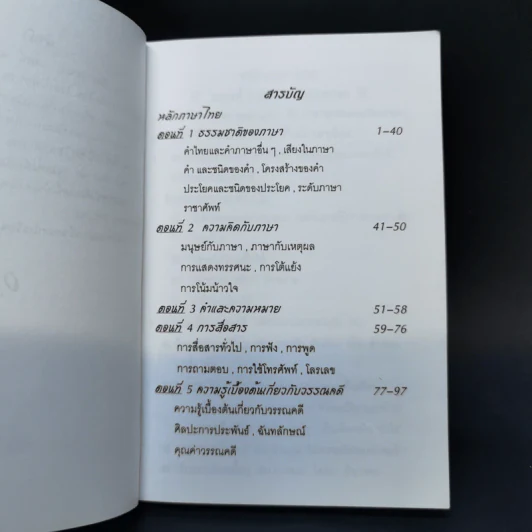 สารบัญ
หลักภาษาไทย
ตอนที่ 1 ธรรมชาติของภาษา 1-40
คำไทยและคำภาษาอื่น ๆ , เสียงในภาษา
คำ และชนิดของคำ , โครงสร้างของคำ
ประโยคและชนิดของประโยค , ระดับภาษา
ราชาศัพท์
ตอนที่ 2 ความคิดกับภาษา 41-50
มนุษย์กับภาษา , ภาษากับเหตุผล
การแสดงทรรศนะ , การโต้แย้ง
การโน้มน้าวใจ
ตอนที่ 3 คำและความหมาย 51-58
ตอนที่ 4 การสื่อสาร 59-76
การสื่อสารทั่วไป , การฟัง , การพูด
การถามตอบ , การใช้โทรศัพท์ , โลรเลข
ตอนที่ 5 ความรู้เบื้องต้นเกี่ยวกับวรรณคดี 77-97
ความรู้เบื้องต้นเกี่ยวกับวรรณคดี
ศิลปะการประพันธ์ , ฉันทลักษณ์
คุณค่าวรรณคดี